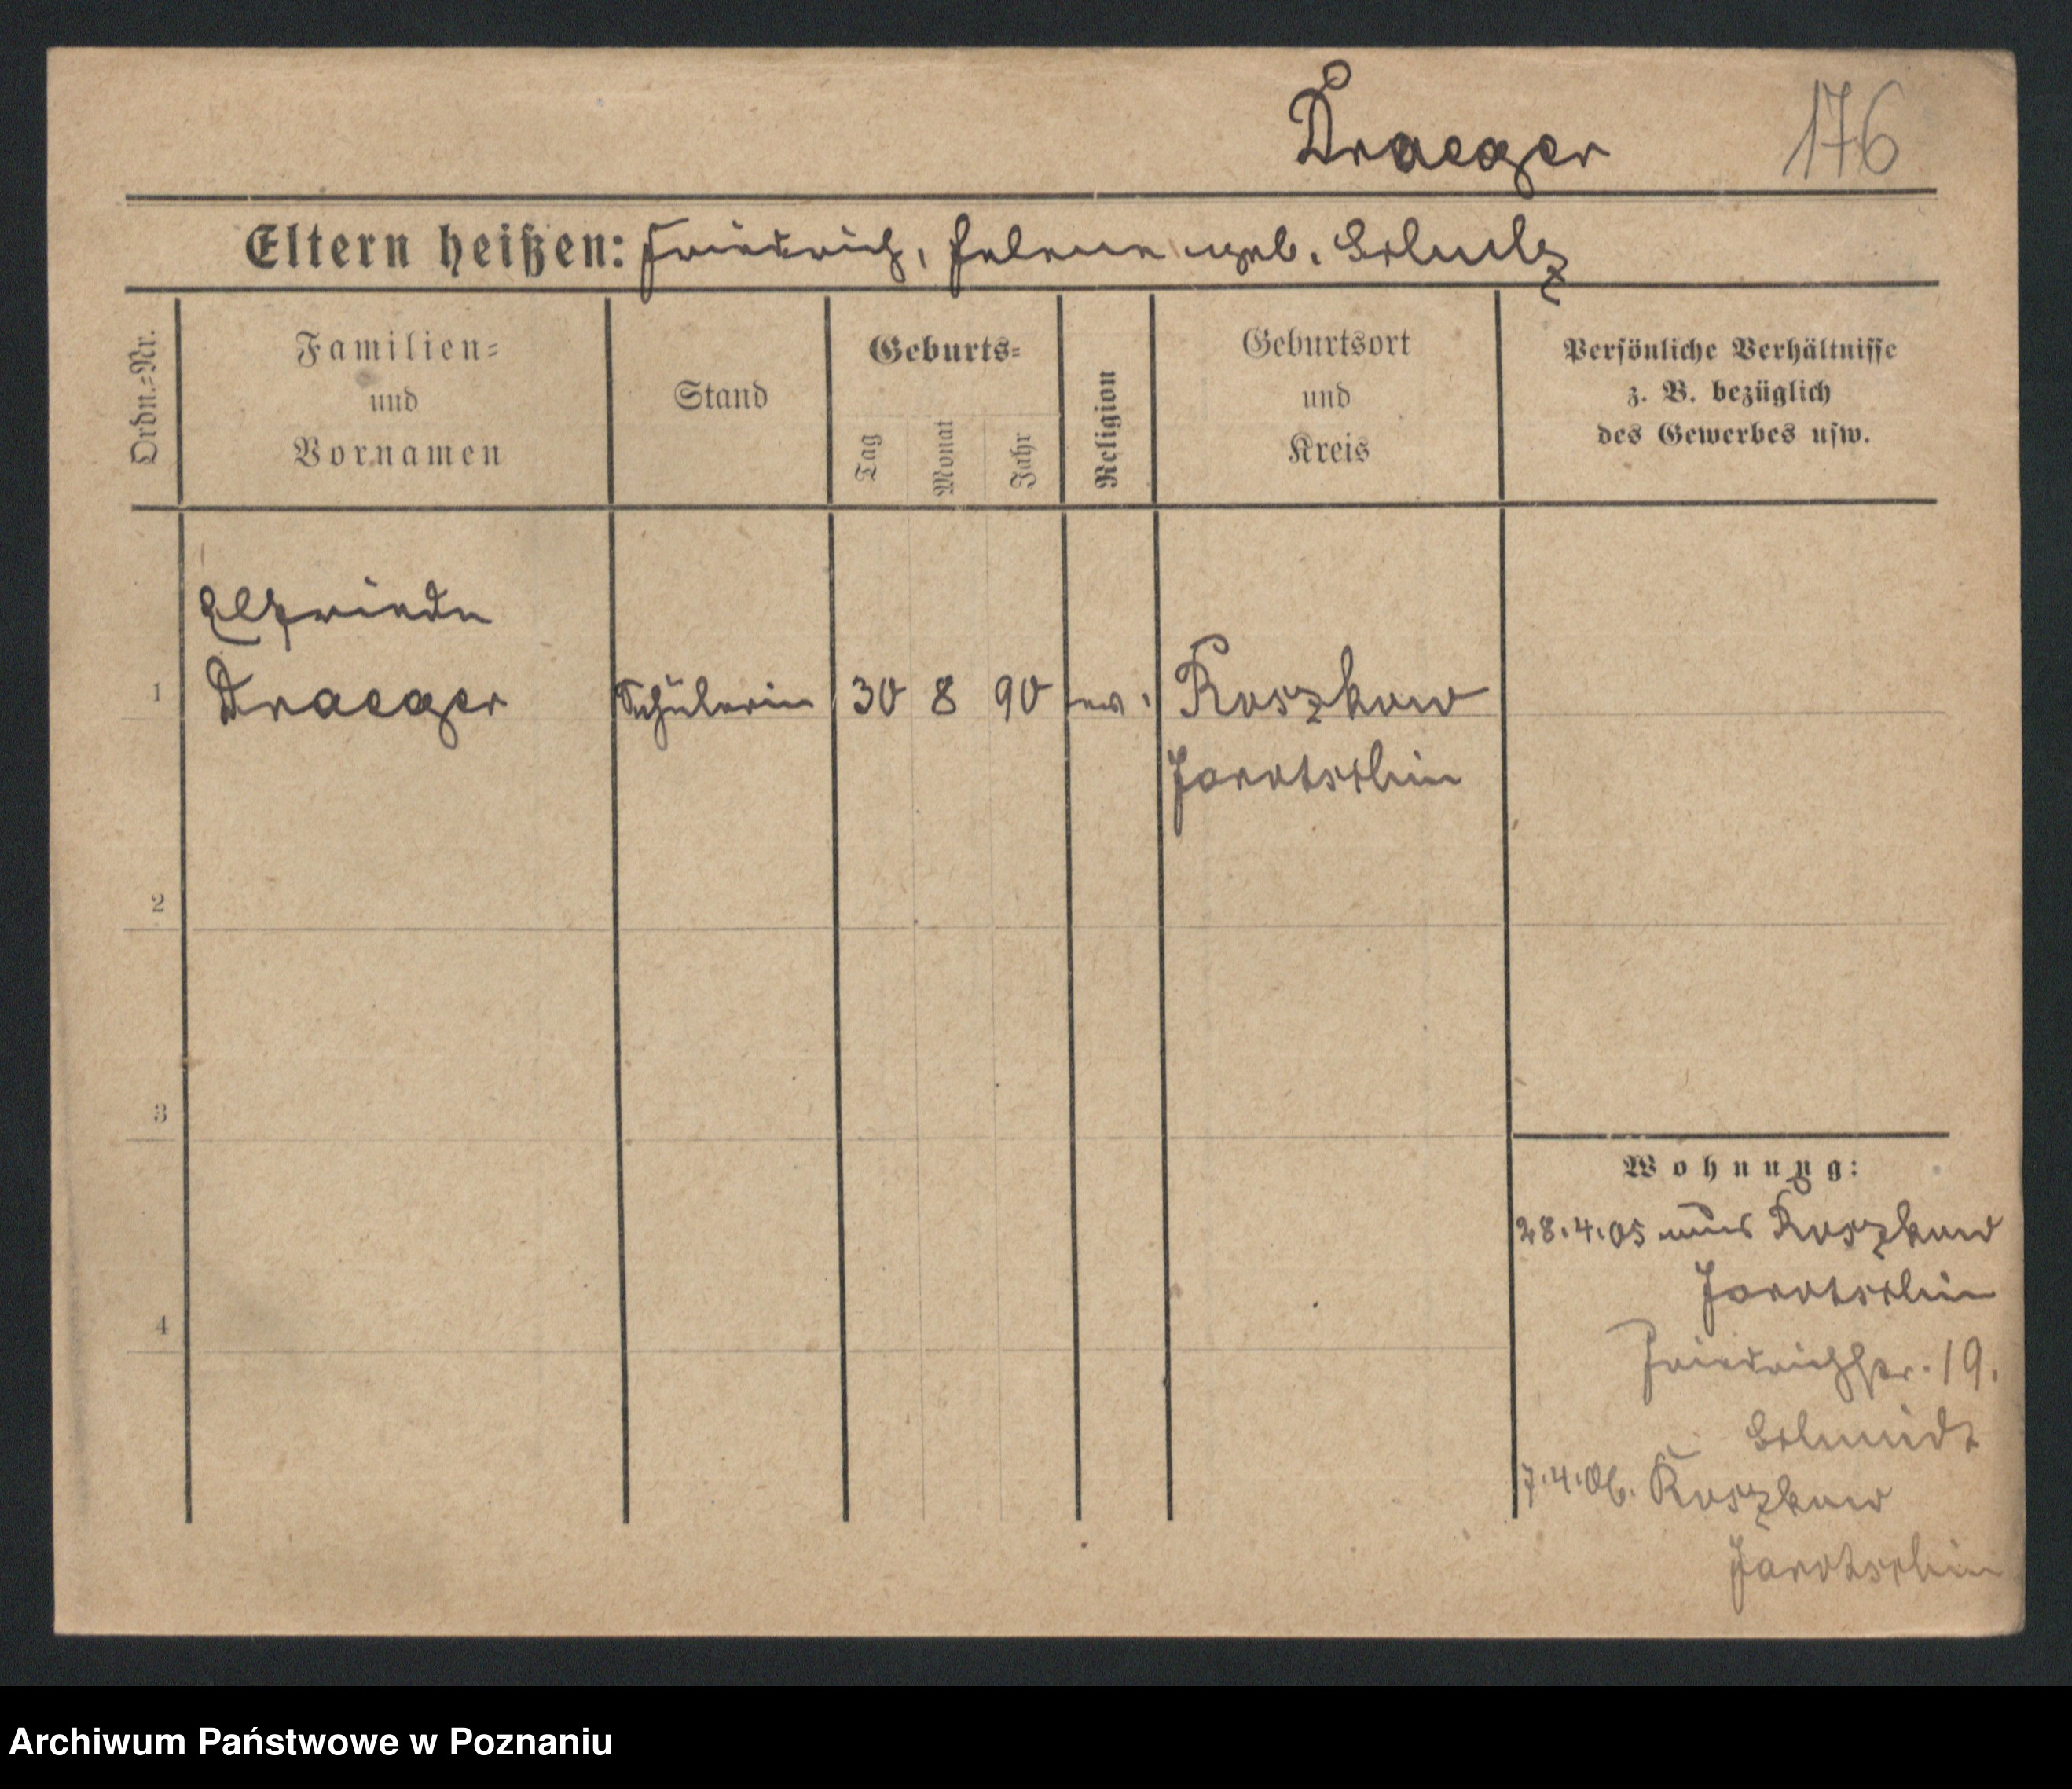 Draeger 176
Eltern heißen: Friedrich, Helene geb. Schulz
Ordn.=Nr.
Familien=
und
Vornamen
Stand
Geburts=
Tag
Monat
Jahr
Religion
Geburtsort
und
Kreis
Persönliche Verhältnisse
z. B. bezüglich
des Gewerbes usw.
Elfriede
1 Draeger Schülerin 30 8 90 ev. Roszkow
Jarotschin
2
3
4
Wohnung:
28.4.05 aus Roszkow
Jarotschin
Friedrichstr. 19.
Schmidt
7.4.06. Roszkow
Jarotschin
Archiwum Państwowe w Poznaniu